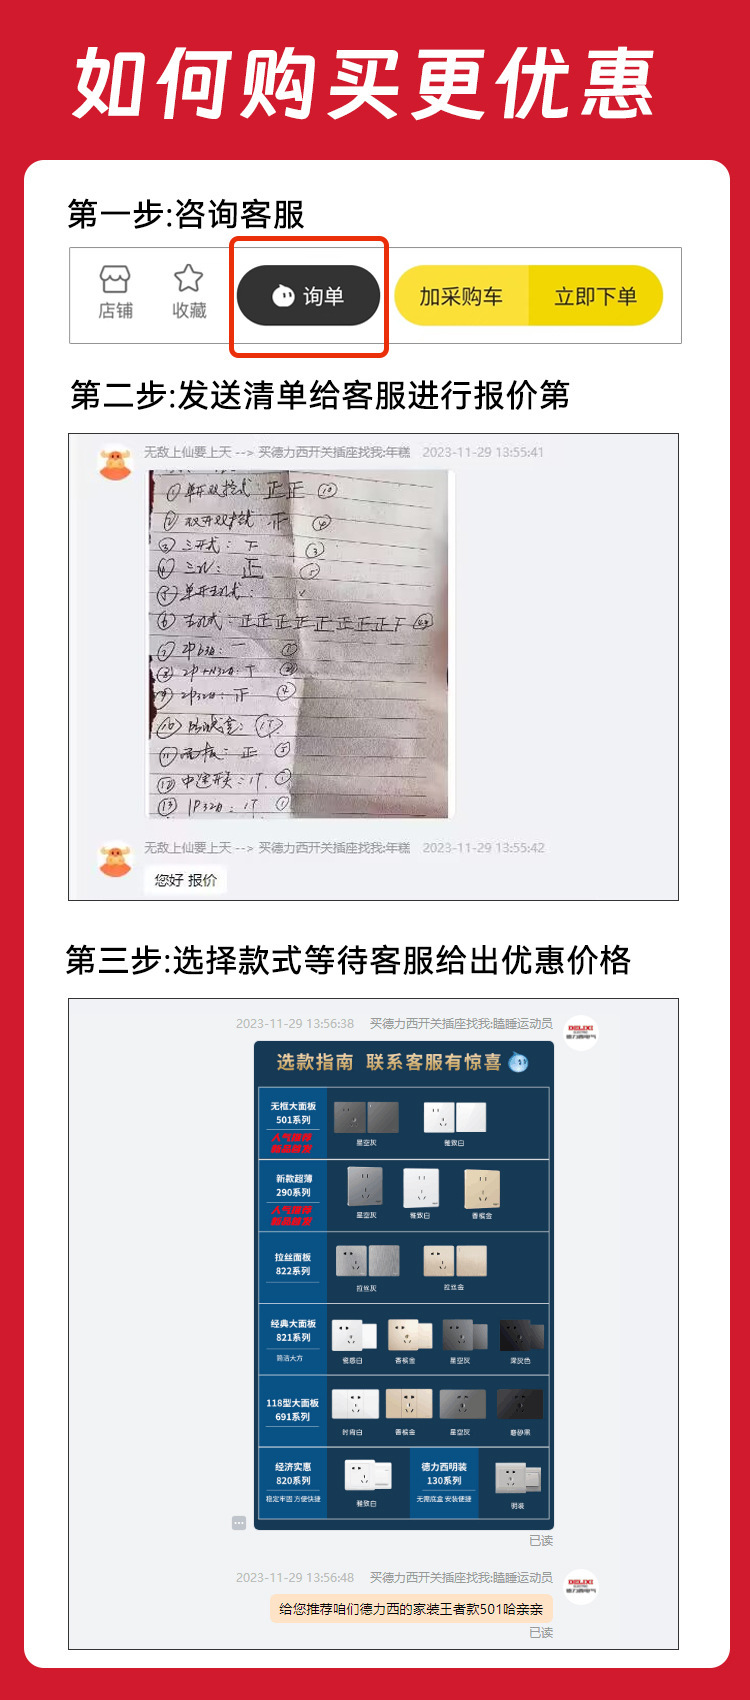 如何购买更优惠
第一步:咨询客服
店铺
收藏
询单
加采购车
立即下单
第二步:发送清单给客服进行报价第
无敌上仙要上天 --> 买德力西开关插座找我:年糕 2023-11-29 13:55:41
①单开双控式:正正 ⑩
②双开双控式 ④
③三开式: ③
④三孔:正 ⑤
⑤单开五孔式:
⑥五孔式:正正正正正正正正
⑦2P63a: ①
⑧2P+N32a:
⑨2P32a: ④
⑪面板:正 ⑤
⑫中途开关: ①
⑬1P32a: ①
无敌上仙要上天 --> 买德力西开关插座找我:年糕 2023-11-29 13:55:42
您好 报价
第三步:选择款式等待客服给出优惠价格
2023-11-29 13:56:38 买德力西开关插座找我:瞌睡运动员
DELIXI
选款指南 联系客服有惊喜
无框大面板
501系列
人气推荐
星空灰
雅致白
新款超薄
290系列
人气推荐
星空灰
雅致白
香槟金
拉丝面板
822系列
拉丝灰
拉丝金
经典大面板
821系列
简洁大方
瓷恩白
香槟金
星空灰
深灰色
118型大面板
691系列
时尚白
香槟金
星空灰
磨砂黑
经济实惠
820系列
稳定牢固 方便快捷
雅致白
德力西明装
130系列
无需底盒 安装便捷
明装
已读
2023-11-29 13:56:48 买德力西开关插座找我:瞌睡运动员
DELIXI
给您推荐咱们德力西的家装王者款501哈亲亲
已读